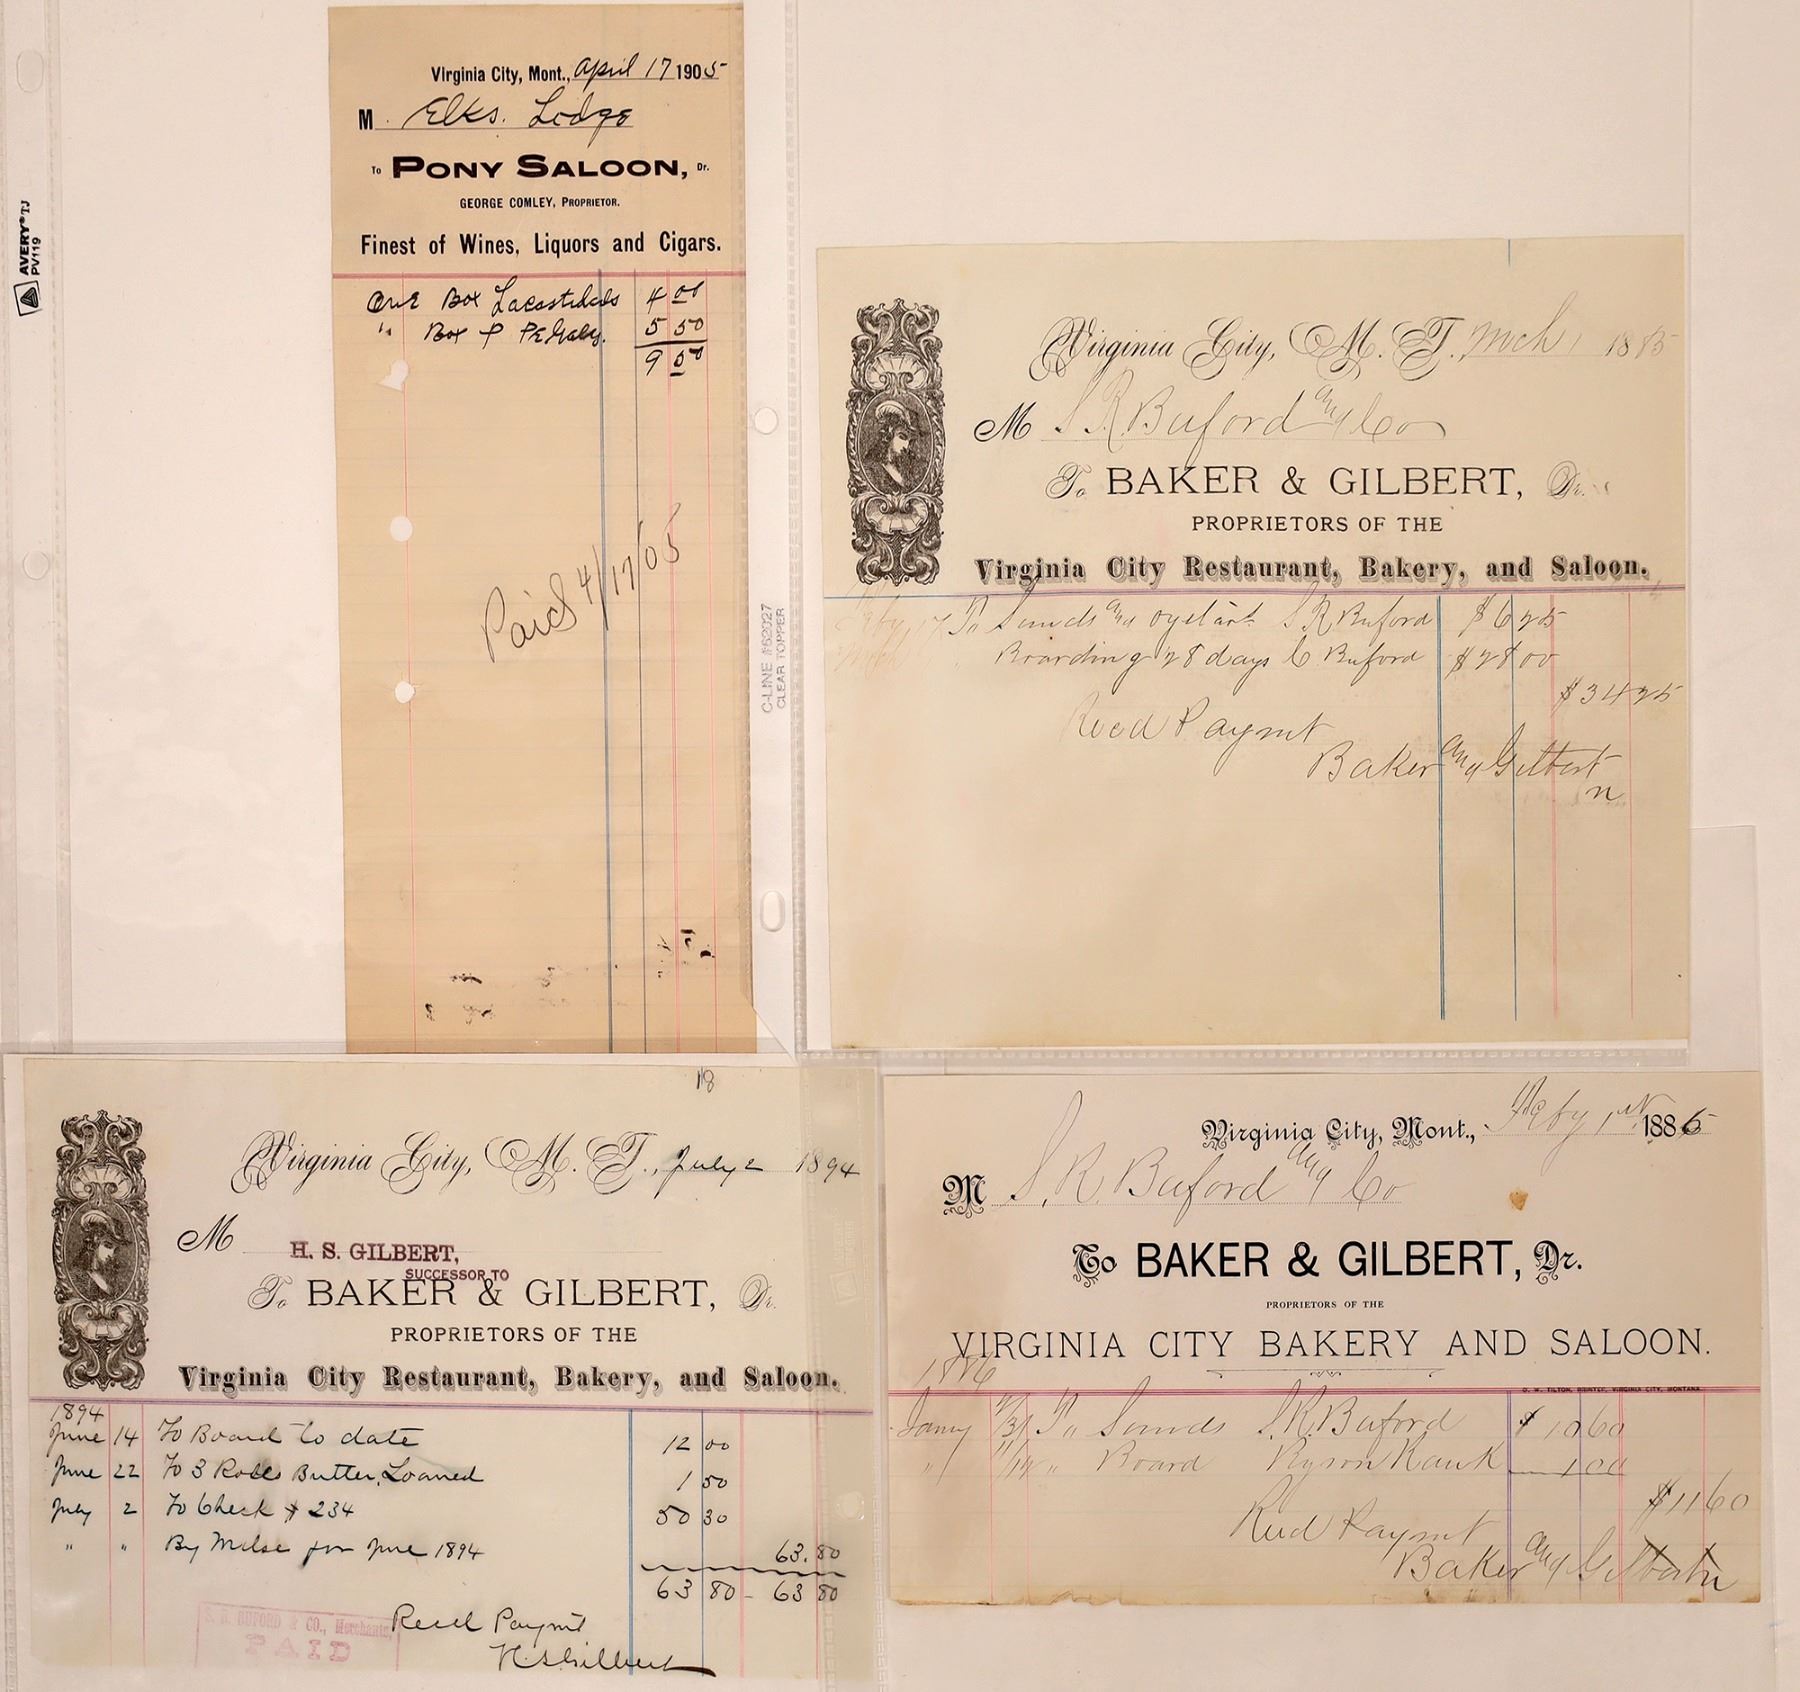 AVERY® TJ
PV119
Virginia City, Mont., April 17 1905
M. Elks. Lodge
To PONY SALOON, Dr.
GEORGE COMLEY, PROPRIETOR.
Finest of Wines, Liquors and Cigars.
One Box 4 00
" Box 5 50
9 50
Paid 4/17/05
C-LINE #62027
CLEAR TOPPER
Virginia City, M. T. Mch 1 1885
M S R Buford and Co
To BAKER & GILBERT, Dr.
PROPRIETORS OF THE
Virginia City Restaurant, Bakery, and Saloon.
17 To Sunds and S R Buford $6 25
Boarding 28 days C Buford $28 00
$34 25
Recd Paymt
Baker and Gilbert
18
Virginia City, M. T., July 2 1894
M
H. S. GILBERT,
SUCCESSOR TO
To BAKER & GILBERT, Dr.
PROPRIETORS OF THE
Virginia City Restaurant, Bakery, and Saloon.
1894
June 14 To Board to date 12 00
June 22 To 3 Rolls Butter, Loaned 1 50
July 2 To Check # 234 50 30
" " By Mdse for June 1894 63.80
63 80 - 63 80
Recd Paymt
H S Gilbert
S. R. BUFORD & CO., Merchants,
PAID
Virginia City, Mont., Feby 1st 1886
M S. R. Buford and Co
To BAKER & GILBERT, Dr.
PROPRIETORS OF THE
VIRGINIA CITY BAKERY AND SALOON.
1886
D. W. TILTON, PRINTER, VIRGINIA CITY, MONTANA.
Jany 31 To Sunds S. R. Buford $10 60
" " Board 1 00
$11 60
Recd Paymt
Baker and Gilbert